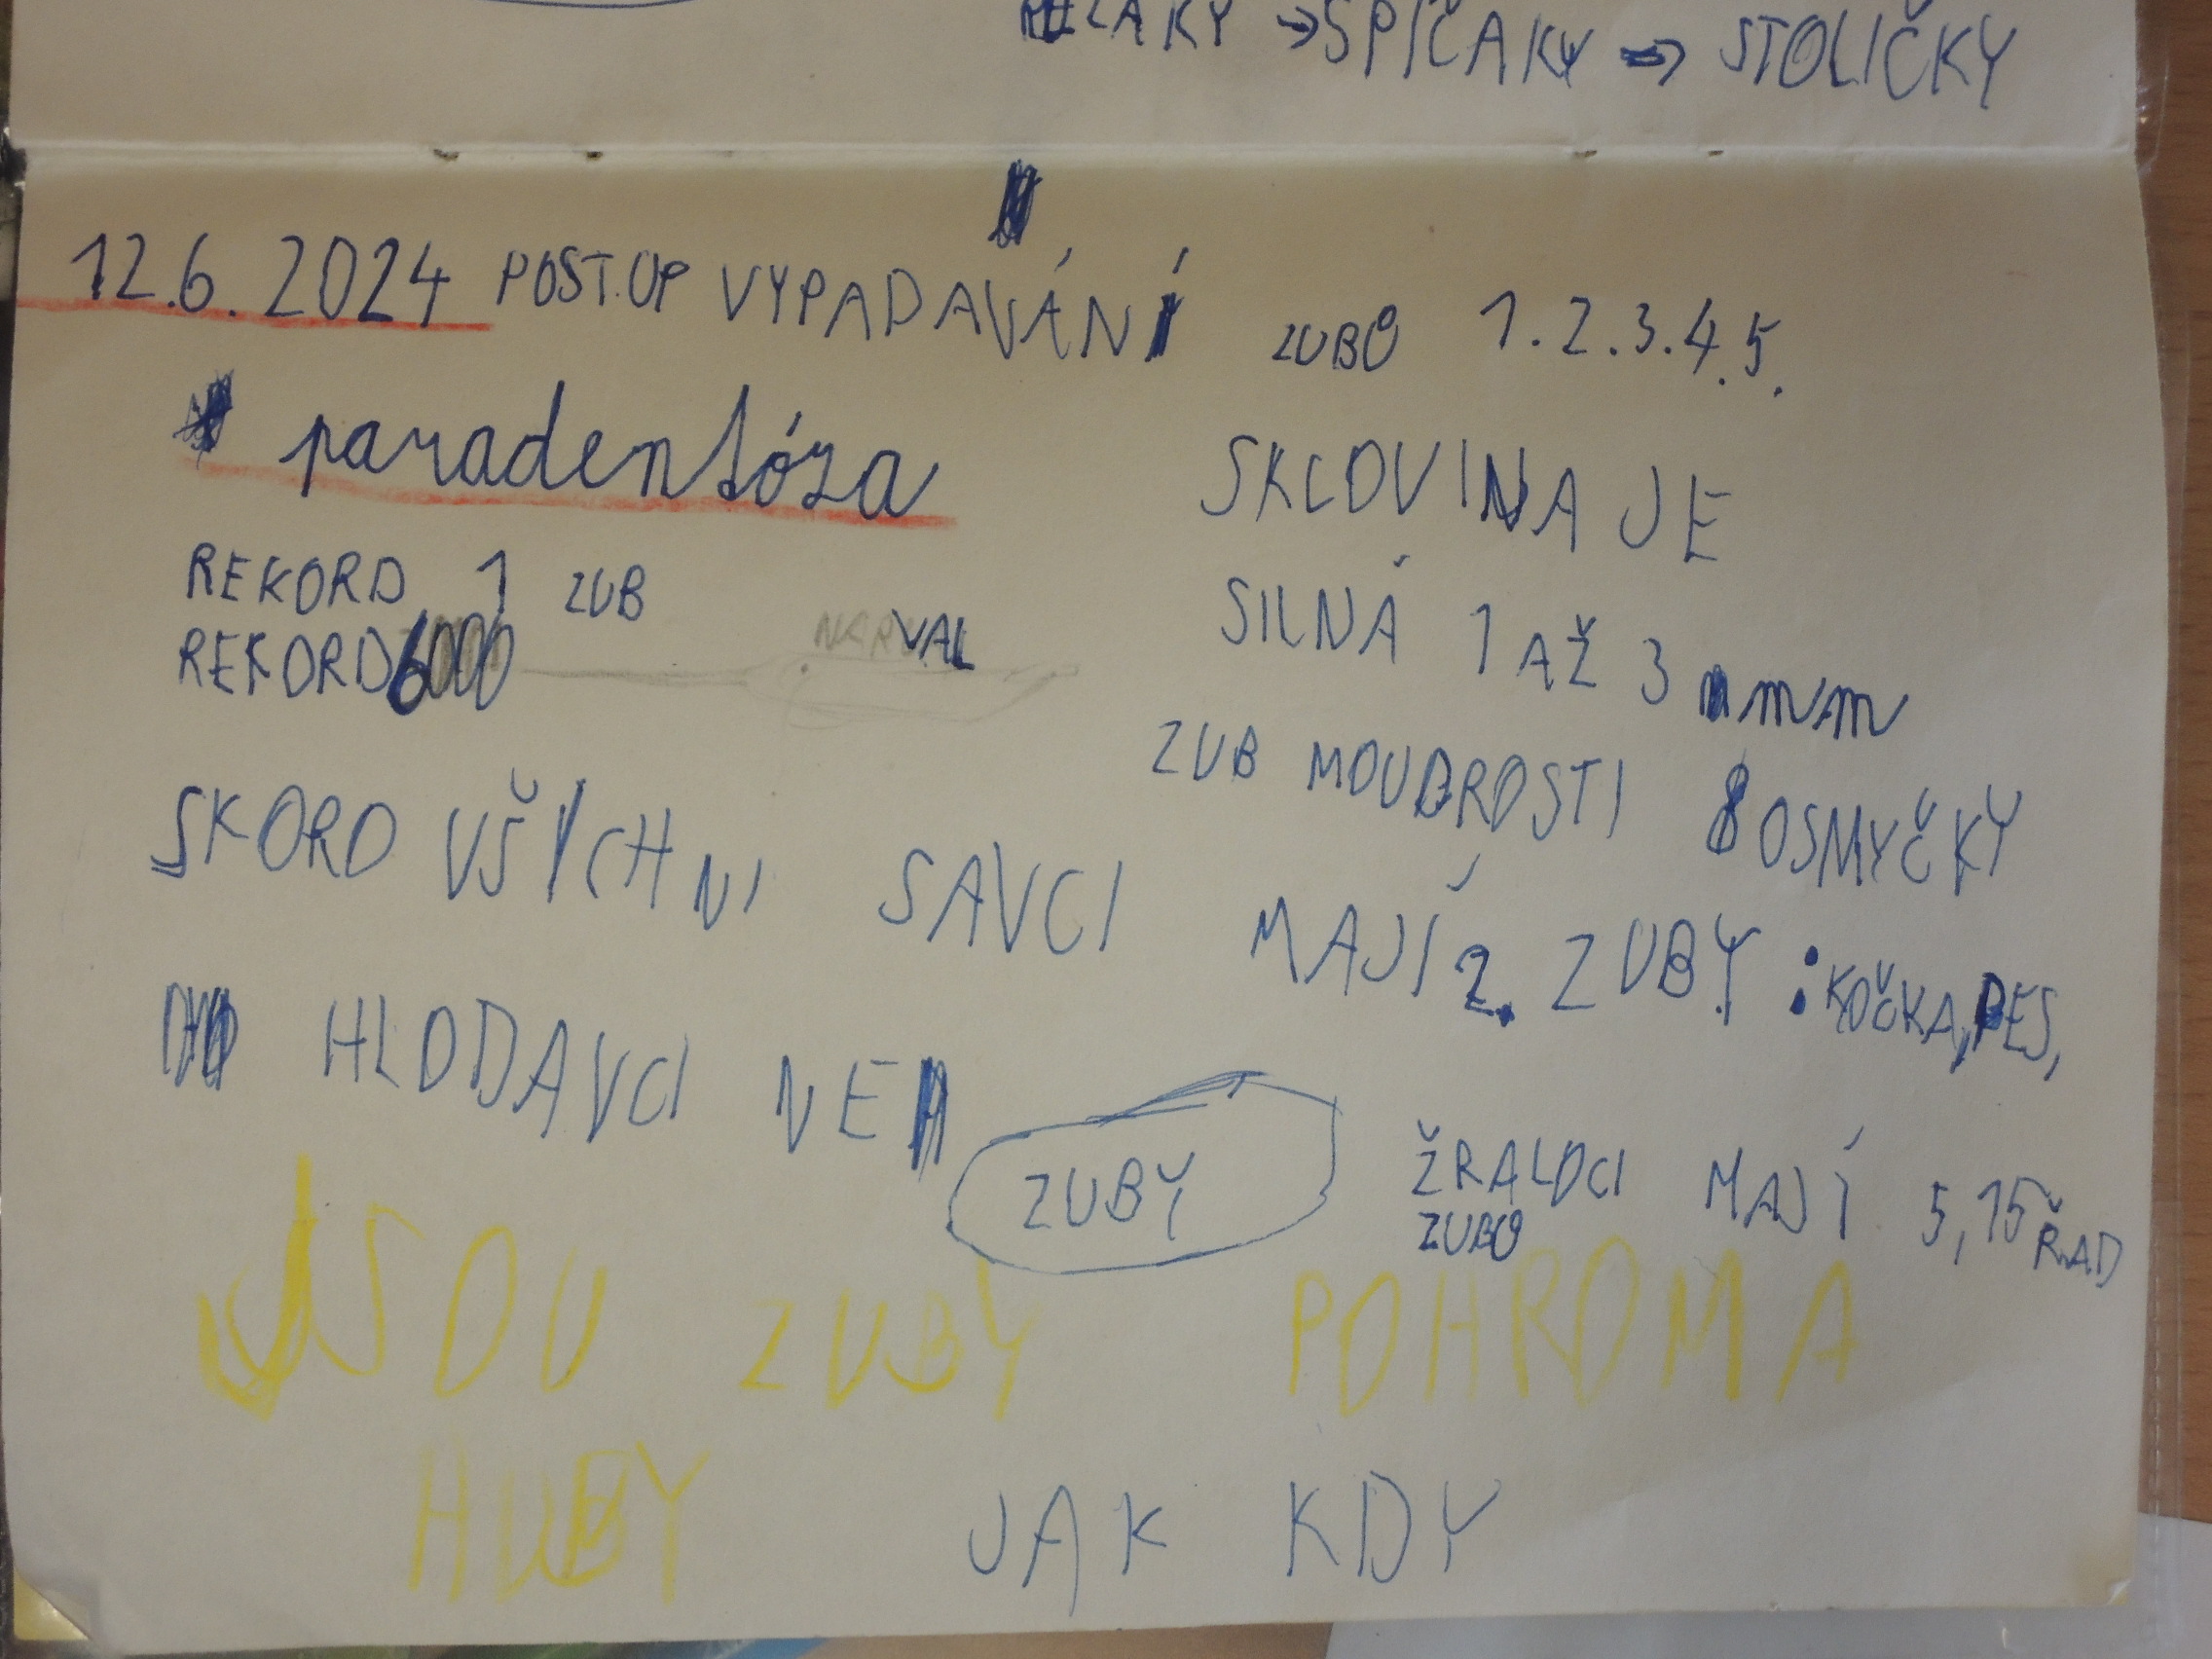 ŘEZÁKY → ŠPIČÁKY → STOLIČKY
12.6.2024 POSTUP VYPADAVÁNÍ ZUBŮ 1.2.3.4.5.
paradentóza
SKLOVINA JE
SILNÁ 1 AŽ 3 mm
REKORD 1 ZUB
REKORD 6000
NARVAL
ZUB MOUDROSTI 8 OSMYČKY
SKORO VŠICHNI SAVCI MAJÍ 2. ZUBY : KOČKA, PES,
HLODAVCI NE
ZUBY
ŽRALOCI MAJÍ 5,15 ŘAD
ZUBŮ
JSOU ZUBY POHROMA
HUBY JAK KDY